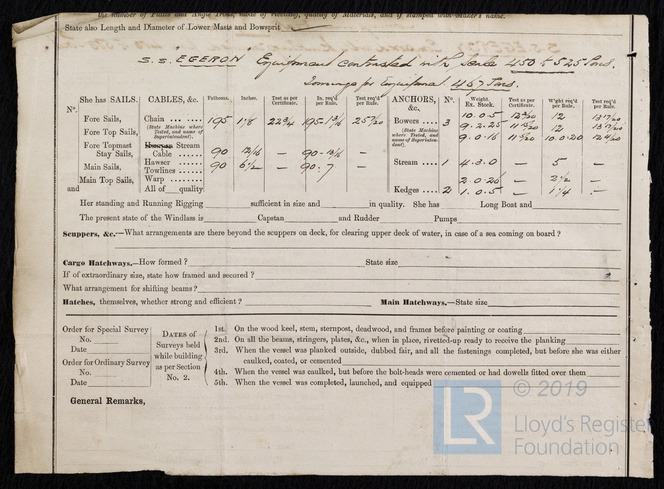 the number of Plates and Angle Irons, mode of rivetting, quality of Materials, and if stamped with maker's name.
State also Length and Diameter of Lower Masts and Bowsprit
S.S. EGERON Equipment contrasted with Scale 450 to 525 Tons.
Tonnage for Equipment 467 Tons.
N°. She has SAILS. CABLES, &c. Fathoms. Inches. Test as per Certificate. In. req'd per Rule. Test req'd per Rule. ANCHORS, &c. N°. Weight. Ex. Stock. Test as per Certificate. W'ght req'd per Rule. Test req'd per Rule.
Fore Sails, Chain 195 1 1/8 22 3/4 195- Bowers 3 10.0.5 12
(State Machine where Tested, and name of Superintendent). (State Machine where Tested, and name of Superintendent).
Fore Top Sails, 9.2.25 12
Fore Topmast Stay Sails, Hempen Stream Cable 90 12/16 — 90- — 9.0.16 10.0.20
Main Sails, Hawser 90 6 1/2 — 90.7 — Stream 1 4.3.0 — 5 —
Towlines
Main Top Sails, Warp 2.0.26 — 2 1/2 —
and All of quality Kedges 2 1.0.5 — 1 1/4 —
Her standing and Running Rigging sufficient in size and in quality. She has Long Boat and
The present state of the Windlass is Capstan and Rudder Pumps
Scuppers, &c.—What arrangements are there beyond the scuppers on deck, for clearing upper deck of water, in case of a sea coming on board ?
Cargo Hatchways.—How formed ? State size
If of extraordinary size, state how framed and secured ?
What arrangement for shifting beams ?
Hatches, themselves, whether strong and efficient ? Main Hatchways.—State size
Order for Special Survey
No.
Date
Order for Ordinary Survey
No.
Date
DATES of Surveys held while building as per Section No. 2.
1st. On the wood keel, stem, sternpost, deadwood, and frames before painting or coating
2nd. On all the beams, stringers, plates, &c., when in place, rivetted-up ready to receive the planking
3rd. When the vessel was planked outside, dubbed fair, and all the fastenings completed, but before she was either
caulked, coated, or cemented
4th. When the vessel was caulked, but before the bolt-heads were cemented or had dowells fitted over them
5th. When the vessel was completed, launched, and equipped
General Remarks,
© 2019
LR
Lloyd's Register
Foundation